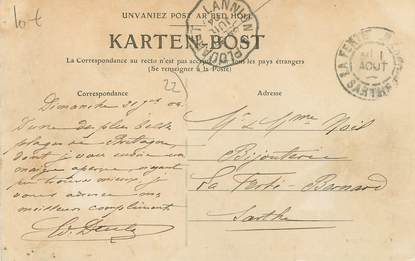 lot
UNVANIEZ POST AR BED HOLL
KARTEN-POST
La Correspondance au recto n'est pas acceptée par tous les pays étrangers
(Se renseigner à la Poste)
LANNION
LA FERTÉ
1
AOUT
SARTHE
22
Correspondance
Adresse
Dimanche 31
D'une des plus belles
plages de Bretagne,
dont je vous envoie un
maigre aperçu, n'ayant
pu trouver mieux, je
vous adresse mes
meilleurs compliments
Mr & Mme Noil
Bijouterie
La Ferté-Bernard
Sarthe